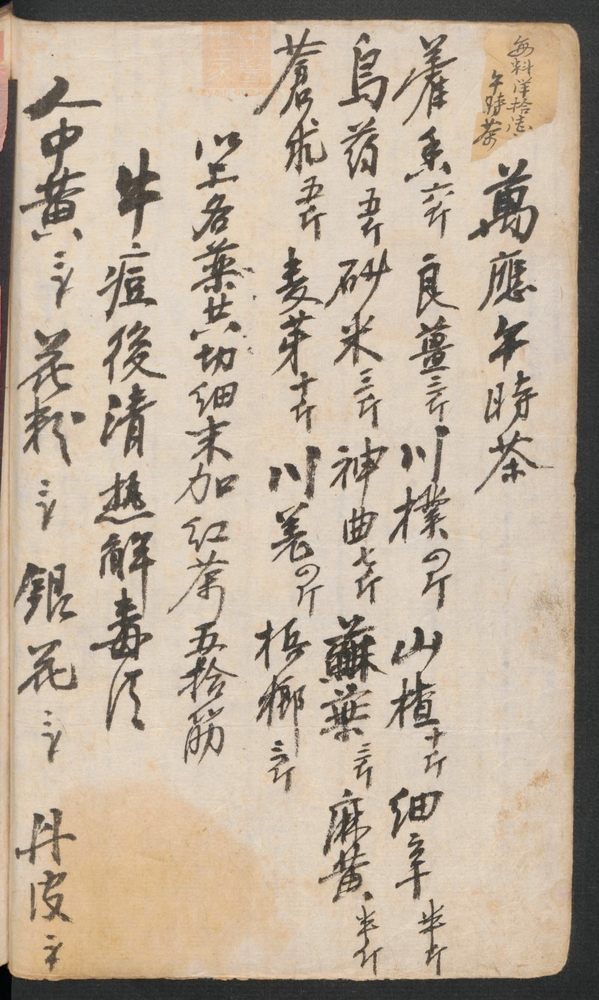 每料洋拾
午時茶
萬應午時茶
藿香六斤 良薑三斤 川樸四斤 山楂十斤 細辛半斤
烏药五斤 砂米三斤 神曲七斤 蘇葉三斤 麻黄半斤
蒼朮五斤 麦芽十斤 川羌四斤 梹榔三斤
以上各藥共切細末加紅茶五拾觔
牛痘後清热解毒法
人中黄三 花粉三 銀花三 丹皮